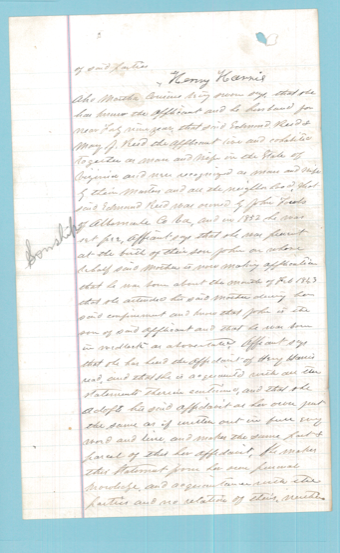 of said parties
Henry Harris
Also Martha being sworn says that she
has known the affiant and her husband for
now forty nine years, that said Edmund Reed &
Mary J. Reed the Affiant live and cohabited
together as man and wife in the State of
Virginia and were recognized as man and wife
by their Masters and all the neighborhood, that
said Edmund Reed was owned by John
of Albemarle Co Va, and in 1852 he was
set free, Affiant says that she was present
at the birth of their son John on whose
behalf said Mother is now making application
that he was born about the month of Feb 1843
that she attended his said Mother during her
said confinement and knows that John is the
son of said affiant and that he was born
in wedlock as above stated. Affiant says
that she has heard the Affidavit of Henry Harris
read, and that she is acquainted with all the
statements therein contained, and that she
adopts his said affidavit as her own just
the same as if written out in full every
word and line, and makes the same part &
parcel of this her affidavit. She makes
this statement from her own personal
knowledge, and acquaintance with the
parties and no relation of theirs, neither
Sonship